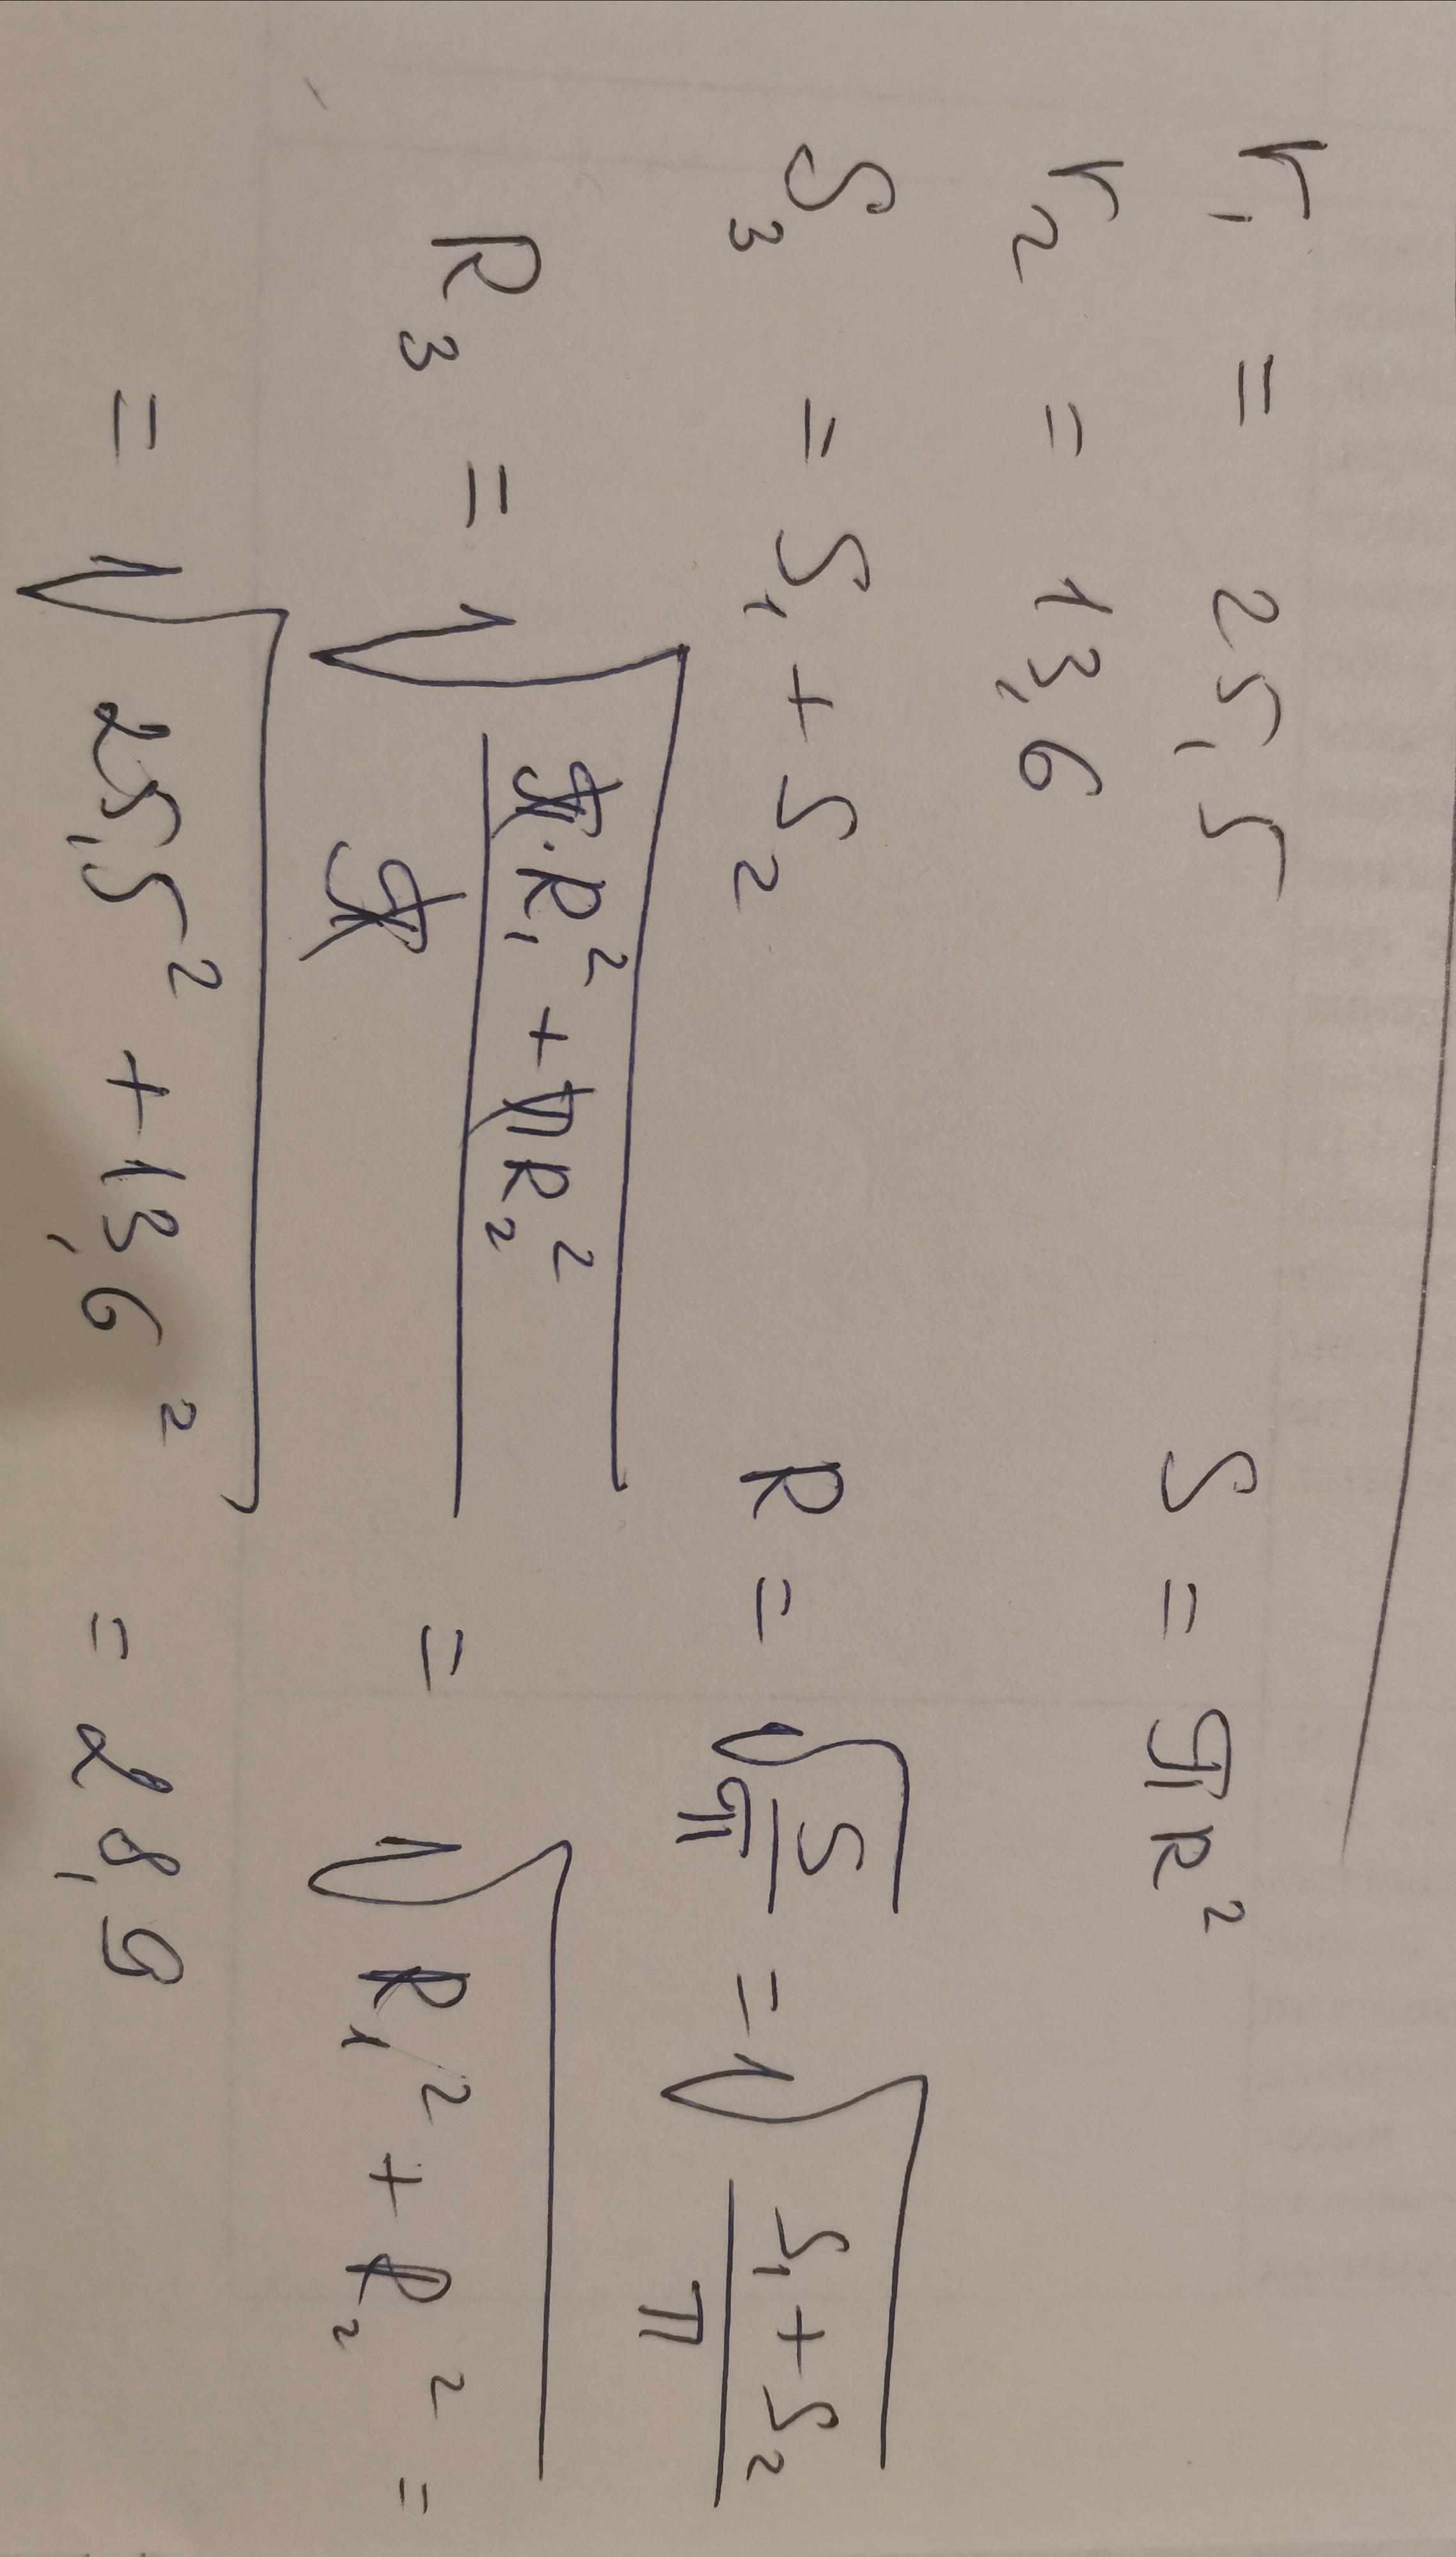 r₁ = 25,5 S = πR²
r₂ = 13,6
S₃ = S₁ + S₂ R = √(S/π) = √((S₁ + S₂)/π)
R₃ = √((π·R₁² + πR₂²)/π) = √(R₁² + R₂²) =
= √(25,5² + 13,6²) = 28,9